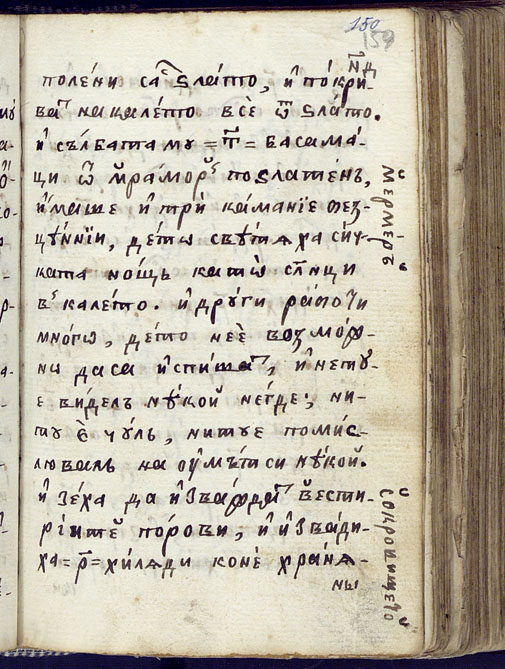 150
159
н҃д
полени са ѕлато, и покри-
ва на калето все ѿ ѕлато.
и сълбата му = т҃ = басама-
ци ѿ мрамор позлатенъ,
имаше и три камание без-
ценнїи, дето светѧха сич-
ката нощь като слнци
в калето. и други работи
много, дето нее возмож-
но да са испита, и нету-
е виделъ некой негде, ни-
ту е чулъ, нитуе помис-
лювалъ на оумътси некой.
и зеха да изважда вести-
рїите порови, и извади-
ха = р҃ = хилѧди коне хранѧ-
ны
мермеръ
сокровището